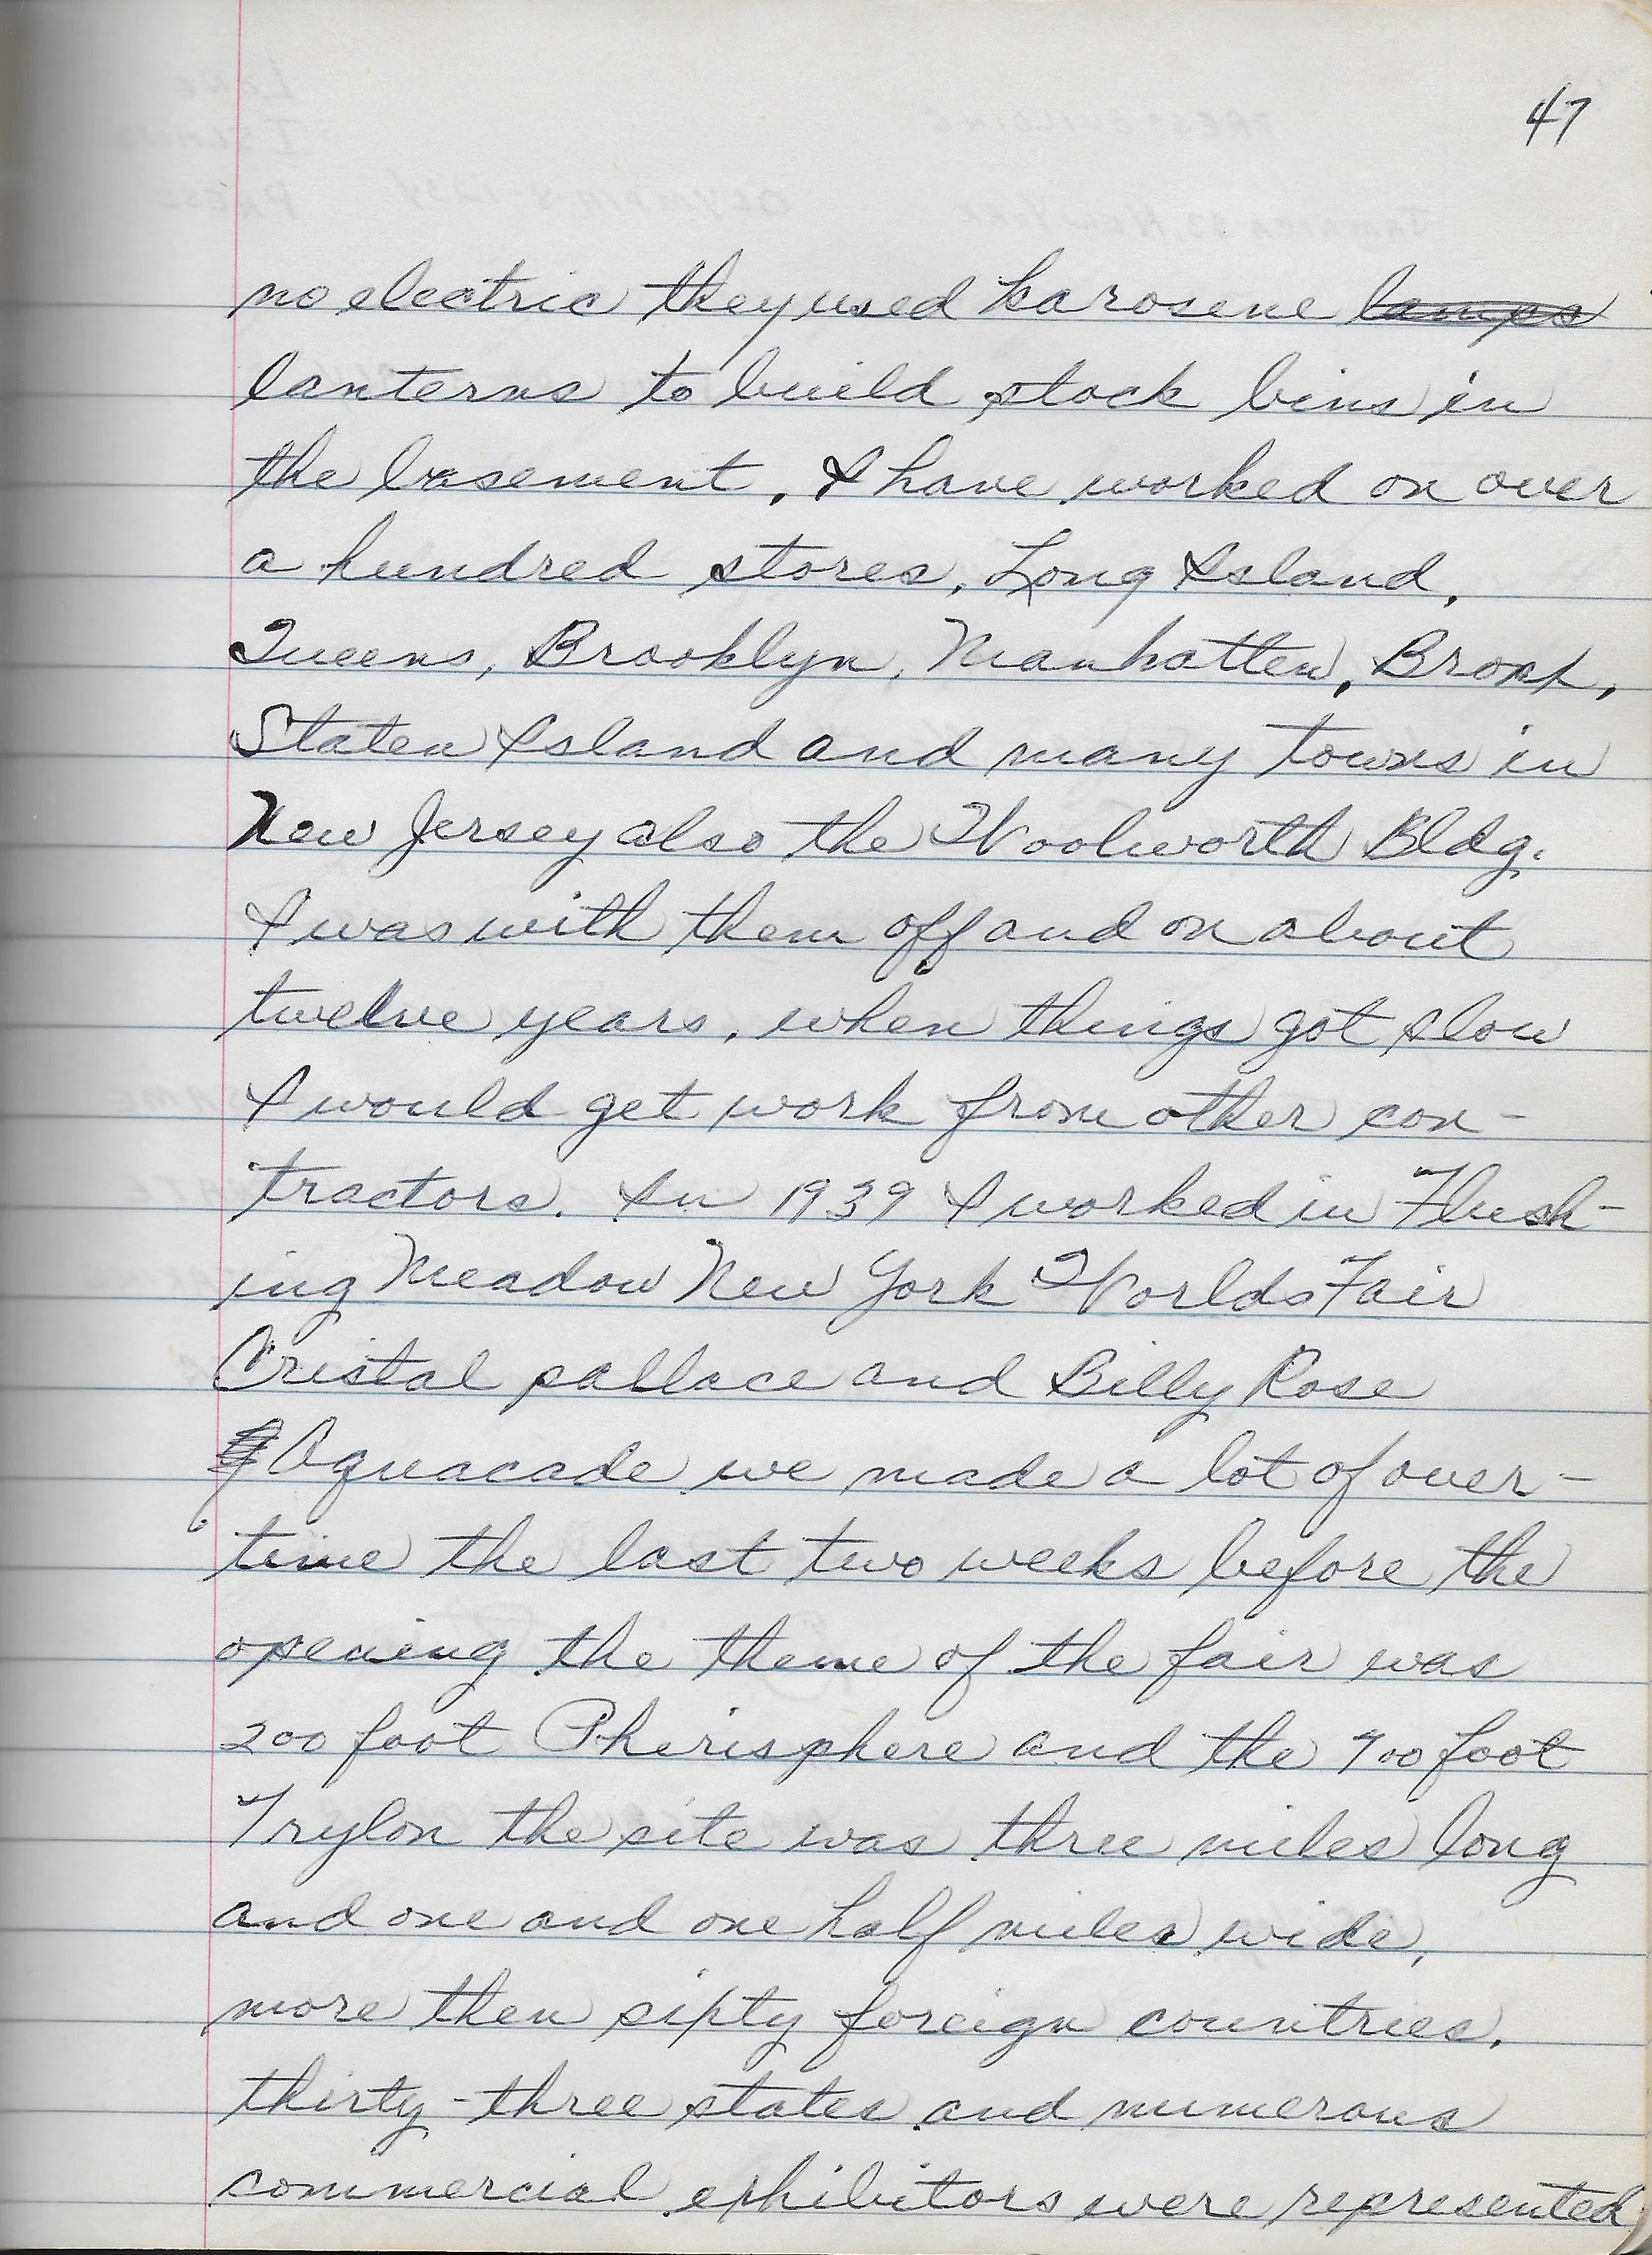 47
no electric they used karosene lamps
lanterns to build stock bins in
the basement, I have worked on over
a hundred stores, Long Island,
Queens, Brooklyn, Manhatten, Bronx,
Staten Island and many towns in
New Jersey also the Woolworth Bldg.
I was with them off and on about
twelve years, when things got slow
I would get work from other con-
tractors. In 1939 I worked in Flush-
ing Meadow New York Worlds Fair
Cristal pallace and Billy Rose
Aquacade we made a lot of over-
time the last two weeks before the
opening the theme of the fair was
200 foot Pherisphere and the 700 foot
Trylon the site was three miles long
and one and one half miles wide,
more then sixty foreign countries,
thirty-three states and numerous
commercial exhibitors were represented